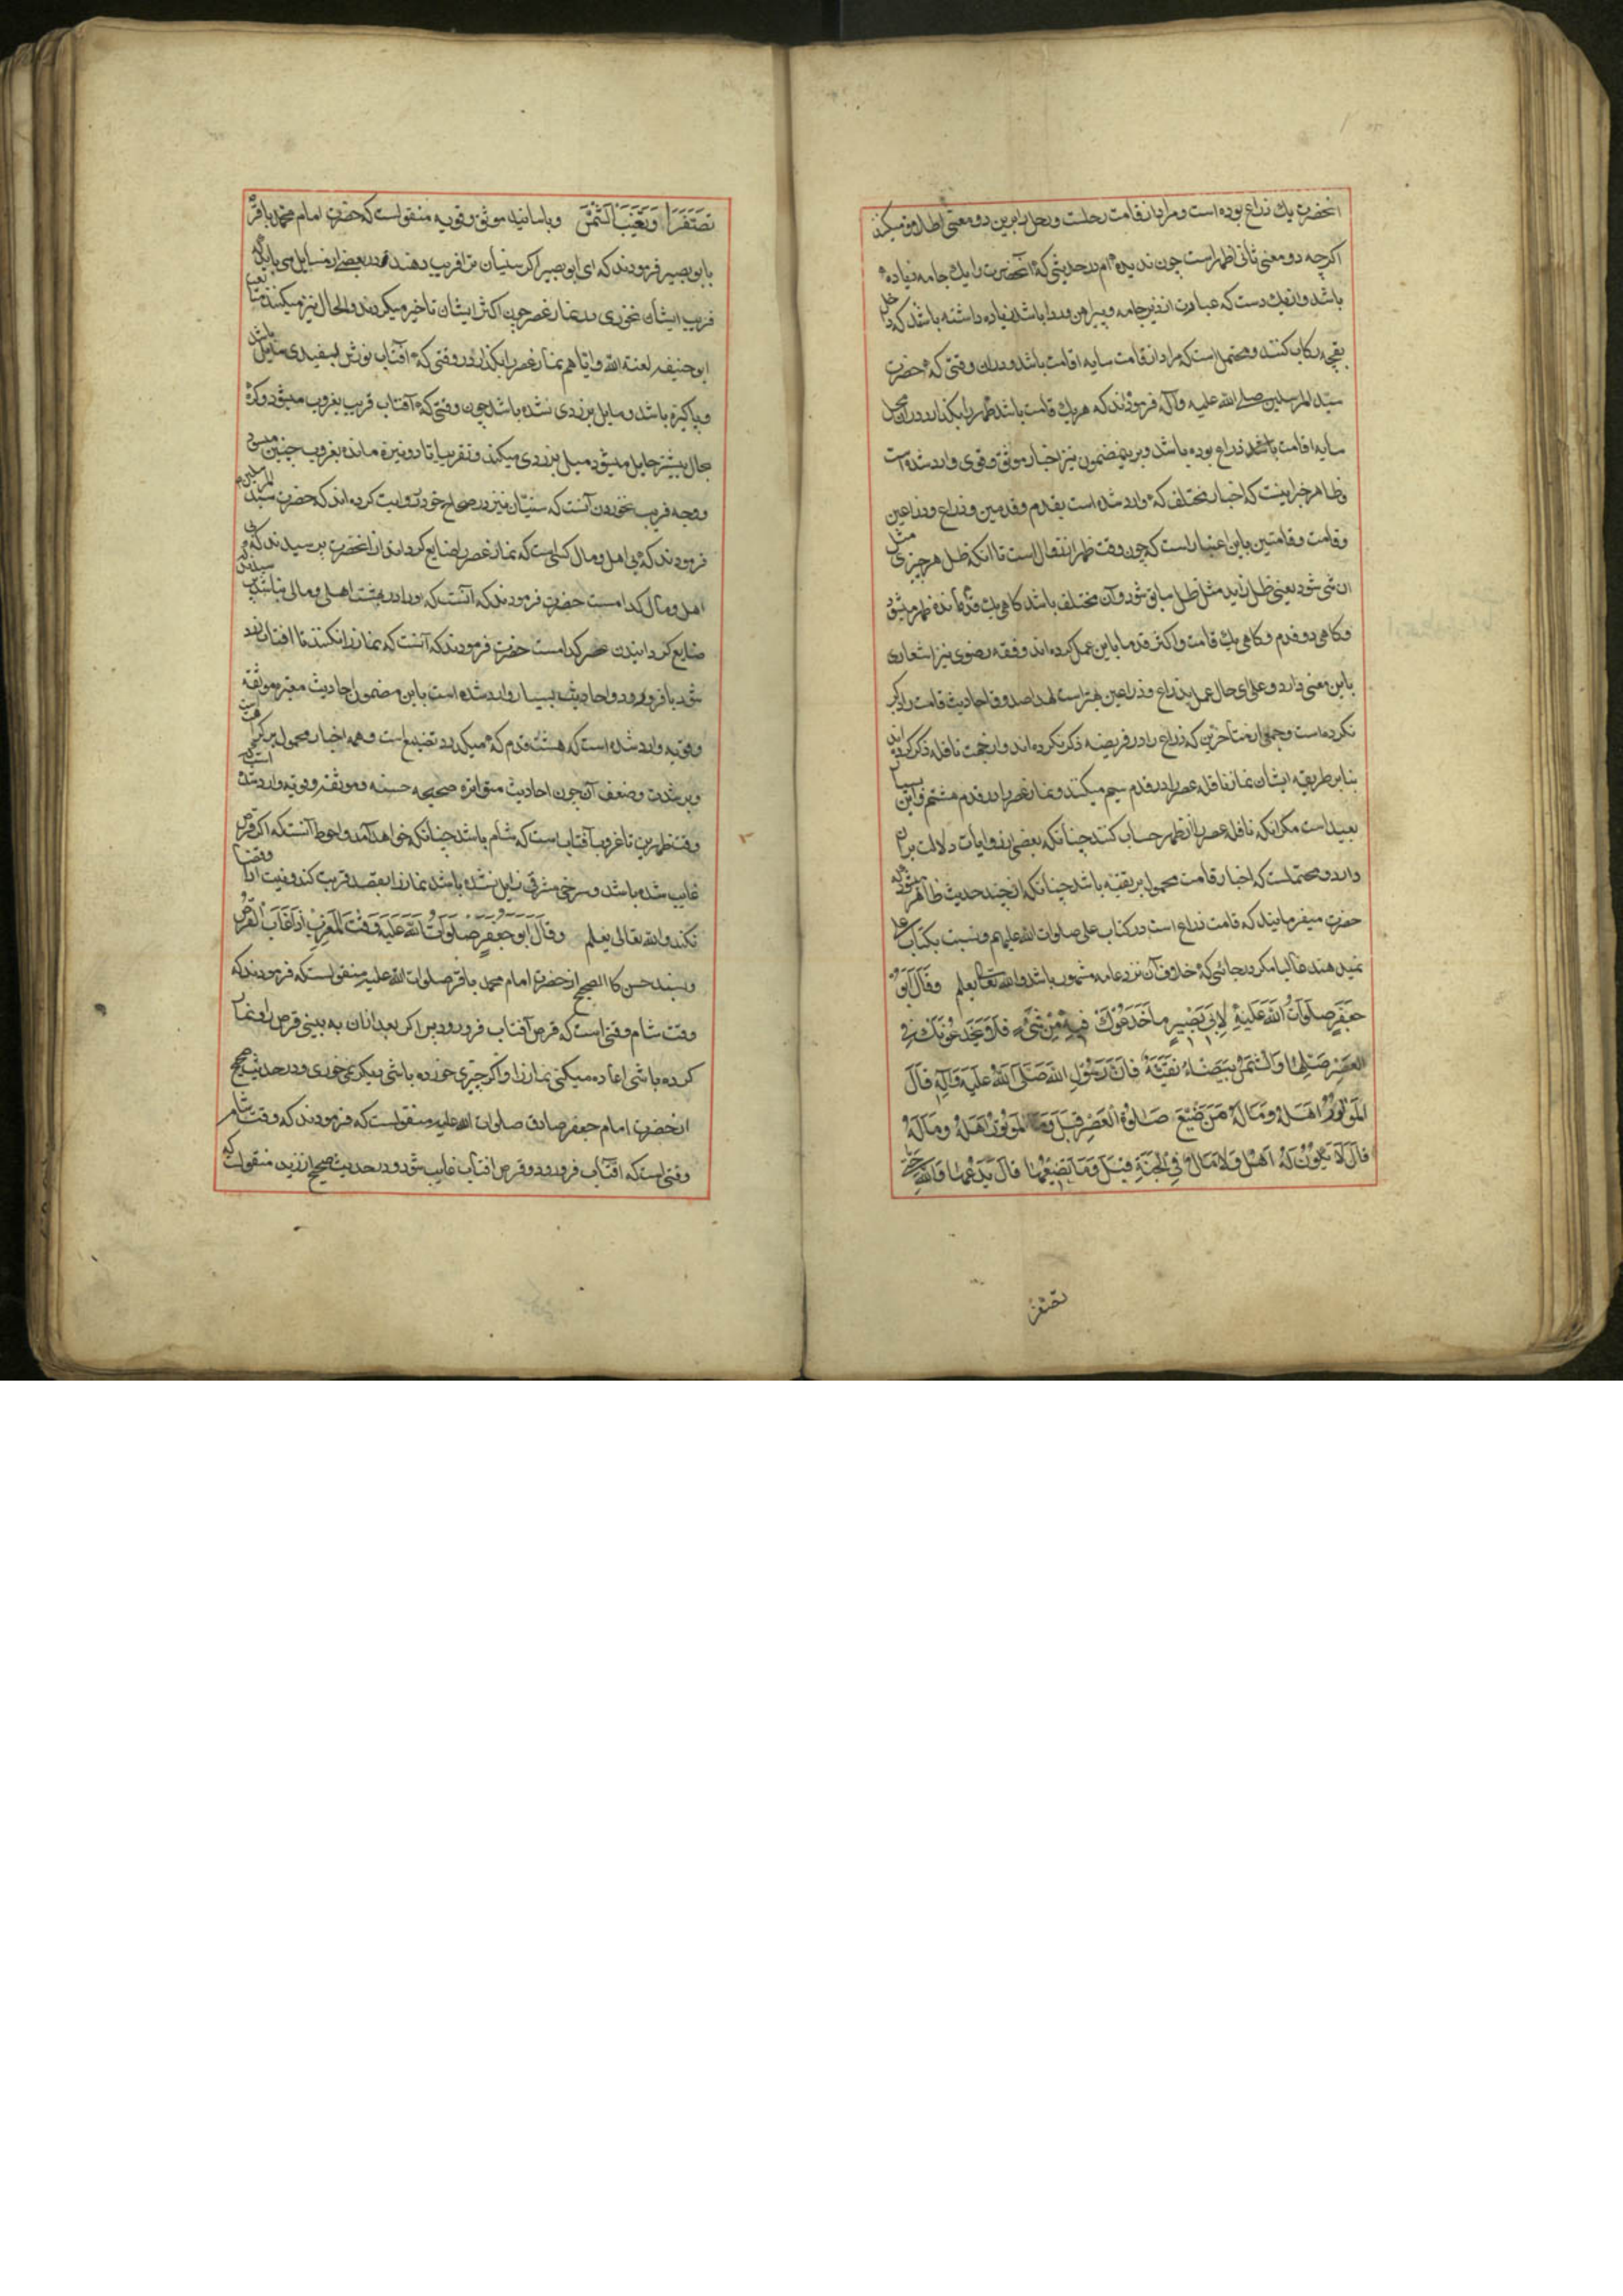 آنحضرت یك ذراع بوده است و مراد از قامت رحلست و رحل را برین دو معنی اطلاق میکنند
اکرچه دو معنی ثانی اظهر است چون ندیده‌ام در حدیثی که آنحضرت را یك جامه زیاده
باشد و این یك دست که عبارت از زیر جامه و پیراهن و ردا باشد زیاده داشته باشند که داخل
بقچه رکاب کنند و محتملست که مراد از قامت سایه اقامت باشد و در آن وقتی که حضرت
سید المرسلین صلی الله علیه و آله فرمودند که هر یك قامت باشد ظهر را بکذارد در آن محل
سایه اقامت باشد ذراع بوده باشد و برین مضمون نیز اخبار موثق و قوی وارد شده است
و ظاهر خبر اینست که اخبار مختلف که وارد شده است بقدم و قدمین و ذراع و ذراعین
و قامت و قامتین باین اعتبار است که چون وقت ظهر از زوال است تا آنکه ظل هر چیزی مثل
آن شی شود یعنی ظل زاید مثل ظل سابق شود و آن مختلف باشد کاهی یك قدم مانده ظهر میشود
و کاهی دو قدم و کاهی یك قامت و اکثر قدما باین عمل کرده اند و فقه رضوی نیز اشعاری
باین معنی دارد و علی ای حال عمل بذراع و ذراعین بهتر است لهذا صدوق احادیث قامت را ذکر
نکرده است و جمعی از متأخرین که ذراع را در فریضه ذکر نکرده اند و از جهت نافله ذکر کرده اند
بنابر طریقه ایشان نماز نافله عصر را در قدم سیم میکنند و نماز عصر را در قدم هشتم و این بسیار
بعید است مکر آنکه نافله عصر را از ظهر حساب کنند چنانکه بعضی از روایات دلالت بر آن
دارد و محتملست که اخبار قامت محمول بر تقیه باشد چنانکه از چند حدیث ظاهر میشود که
حضرت میفرمایند که قامت ذراع است در کتاب علی صلوات الله علیهم و نسبت بکتاب علی
نمیدهند غالبا مکر در جائی که خلاف آن نزد عامه مشهور باشد و الله تعالی یعلم وَقَالَ اَبُو
جَعْفَرٍ صَلَوَاتُ اللهِ عَلَیْهِ لِاَبِی بَصِیرٍ مَا خَدَعُوكَ فِیهِ مِنْ شَیْءٍ فَلَا یَخْدَعُونَكَ فِی
الْعَصْرِ صَلِّهَا وَالشَّمْسُ بَیْضَاءُ نَقِیَّةٌ فَاِنَّ رَسُولَ اللهِ صَلَّی اللهُ عَلَیْهِ وَآلِهِ قَالَ
الْمَوْتُورُ اَهْلَهُ وَمَالَهُ مَنْ ضَیَّعَ صَلٰوةَ الْعَصْرِ قِیلَ وَمَا الْمَوْتُورُ اَهْلَهُ وَمَالَهُ
قَالَ لَا یَکُونُ لَهُ اَهْلٌ وَلَا مَالٌ فِی الْجَنَّةِ قِیلَ وَمَا یُضَیِّعُهَا قَالَ یَدَعُهَا وَاللهِ حَتّٰی
تصفر
تَصْفَرَّ اَوْ تَغِیبَ الشَّمْسُ و باسانید موثق و قویه منقولست که حضرت امام محمد باقر
بابو بصیر فرمودند که ای ابو بصیر اکر سنیان ترا فریب دهند در بعضی از مسایل می باید که
فریب ایشان نخوری در نماز عصر چون اکثر ایشان تاخیر میکردند و الحال نیز میکنند تبعیت
ابو حنیفه لعنة الله و ایاهم نماز عصر را بکذار در وقتی که آفتاب نورش بسفیدی مایل باشد
و پاکیزه باشد و مایل بزردی نشده باشد چون وقتی که آفتاب قریب بغروب میشود و کره
بحال بیشتر حایل میشود میل بزردی میکند و تقریبا تا دو نیزه مانده بغروب چنین میشود
و وجه فریب نخوردن آنست که سنیان نیز در صحاح خود روایت کرده اند که حضرت سید المرسلین
فرمودند که بی اهل و مال کسی است که نماز عصر را ضایع کرداند از آنحضرت پرسیدند که بی
اهل و مال کدامست حضرت فرمودند که آنست که او را در بهشت اهلی و مالی نباشد پرسیدند که
ضایع کردانیدن عصر کدامست حضرت فرمودند که آنست که نماز را نکنند تا آفتاب زرد
شود یا فرو رود و احادیث بسیار وارد شده است باین مضمون احادیث معتبره موثقه
و قویه وارد شده است که هشت قدم که میکذرد تضییع است و همه اخبار محمول بر کراهت است
و بر شدت و ضعف آن چون احادیث متواتره صحیحه حسنه و موثقه و قویه وارد شده است که
وقت ظهرین تا غروب آفتاب است که شام باشد چنانکه خواهد آمد و احوط آنست که اکر قرص
غایب شده باشد و سرخی مشرقی زایل نشده باشد نماز را بقصد قربت کند و نیت ادا و قضا
نکند و الله تعالی یعلم وَقَالَ اَبُو جَعْفَرٍ صَلَوَاتُ اللهِ عَلَیْهِ وَقْتُ الْمَغْرِبِ اِذَا غَابَ الْقُرْصُ
و بسند حسن کالصحیح از حضرت امام محمد باقر صلوات الله علیه منقولست که فرمودند که
وقت شام وقتی است که قرص آفتاب فرو رود پس اکر بعد از آن به بینی قرص را و نماز
کرده باشی اعاده میکنی نماز را و اکر چیزی خورده باشی دیکر نمی خوری و در حدیث صحیح
از حضرت امام جعفر صادق صلوات الله علیه منقولست که فرمودند که وقت شام
وقتی است که آفتاب فرو رود و قرص آفتاب غایب شود و در حدیث صحیح از زید منقولست که